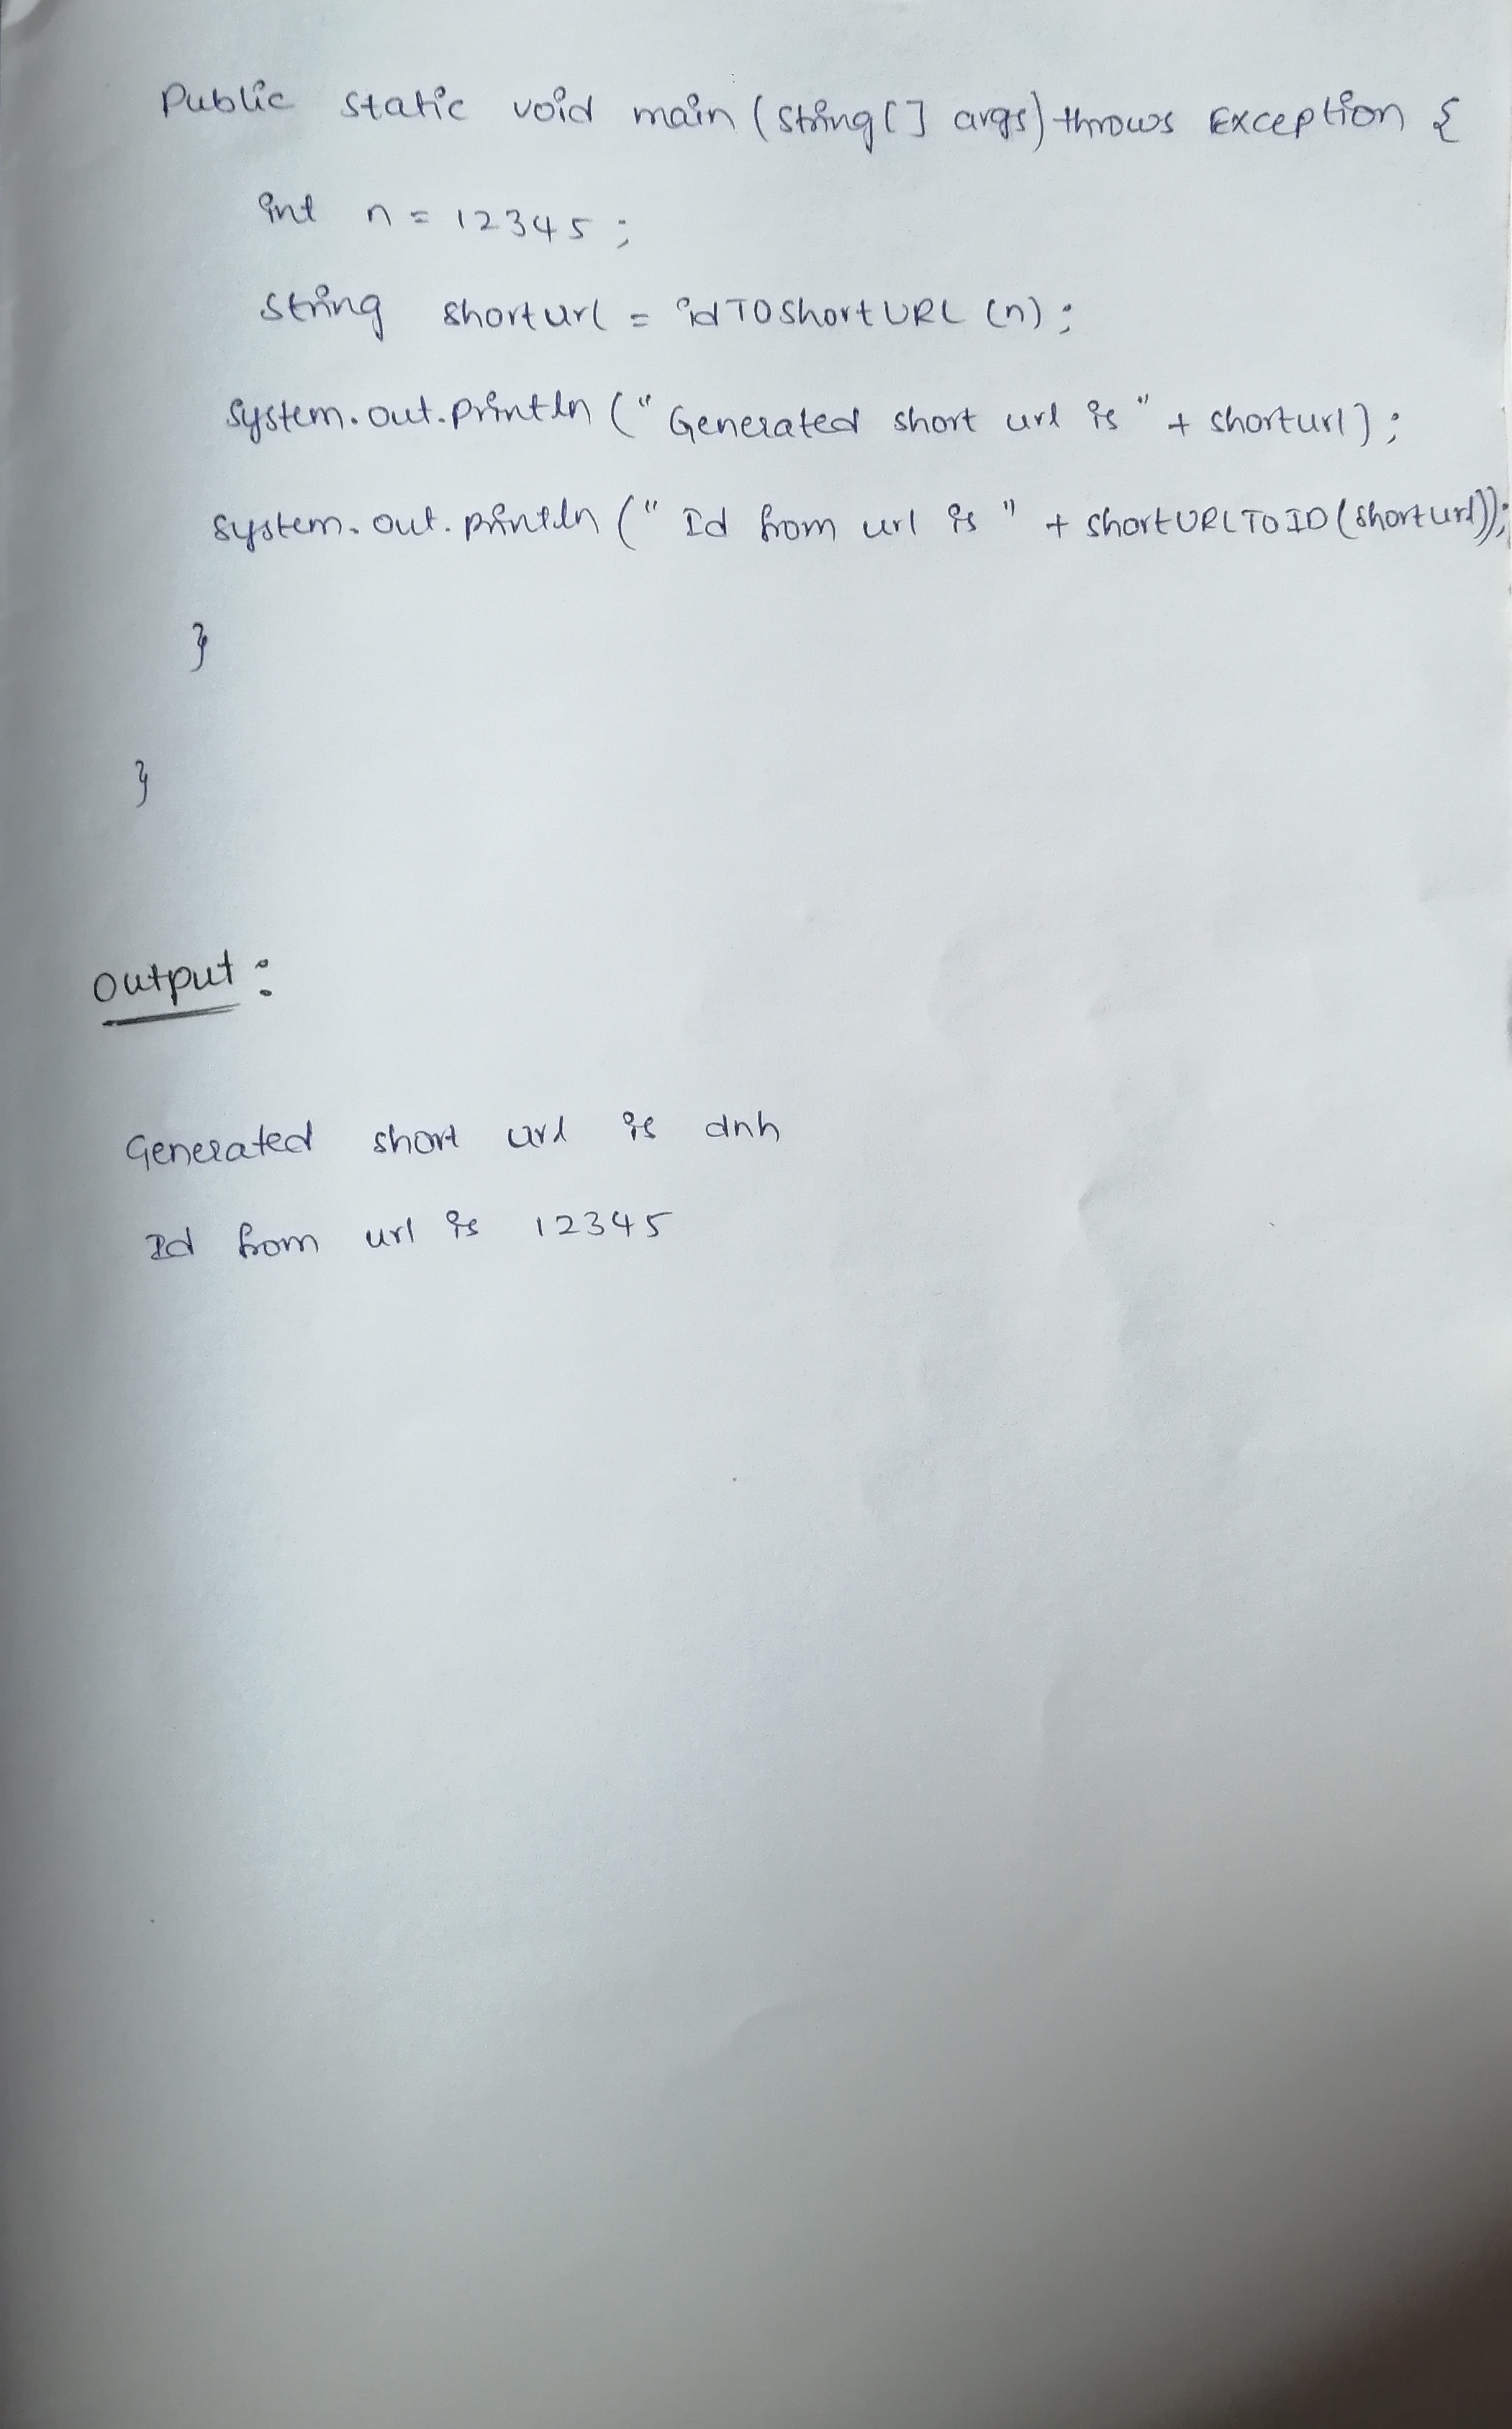 Public static void main (string[] args) throws Exception {
int n = 12345;
string shorturl = idToShortURL (n);
system.out.println (" Generated short url is " + shorturl);
system.out.println (" Id from url is " + shortURLToID (shorturl));
}
}
output :
Generated short url is dnh
Id from url is 12345